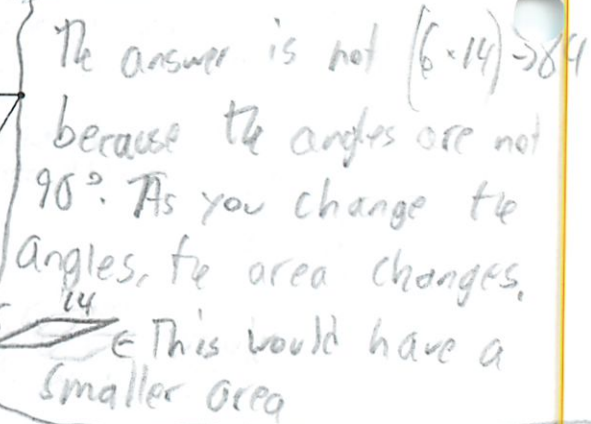 The answer is not (6·14)→84
because the angles are not
90°. As you change the
angles, the area changes.
14
← This would have a
smaller area